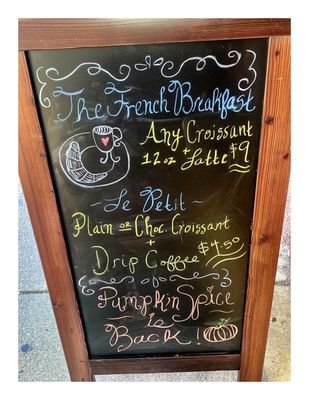 The French Breakfast
Any Croissant
+
12oz Latte $9
~Le Petit~
Plain or Choc. Croissant
+
Drip Coffee $4.50
Pumpkin Spice
is
Back!